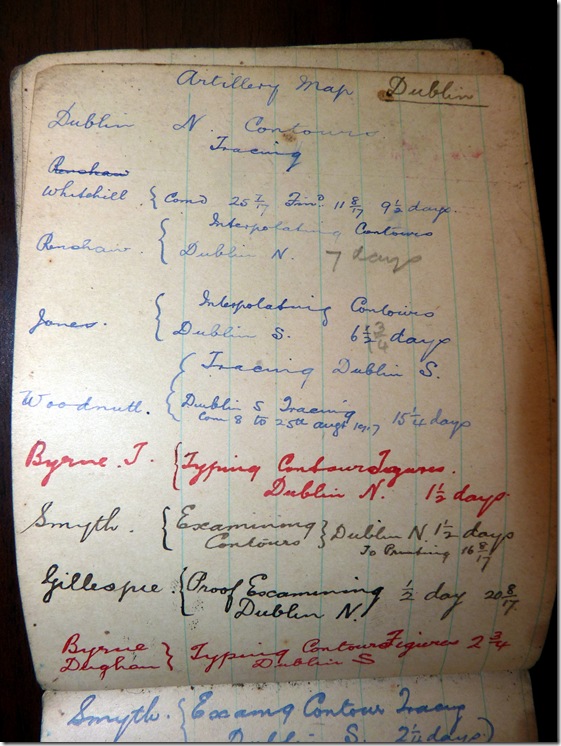 Artillery Map Dublin
Dublin N Contours
Tracing
Renshaw
Whitehill. { Com'd 25 7/17 Fin'd. 11 8/17 9 1/2 days.
Interpolating Contours
Renshaw. { Dublin N. 7 days
Interpolating Contours
Jones. { Dublin S. 6 1/2 3/4 days
{ Tracing Dublin S.
Woodnutt. { Dublin S Tracing
Com 8 to 25th augt 1917 15 1/4 days
Byrne. T. { Typing Contour Figures.
Dublin N. 1 1/2 days.
Smyth. { Examining Contours } Dublin N. 1 1/2 days
To Printing 16 8/17
Gillespie. { Proof Examining 1/2 day 20 8/17
Dublin N.
Byrne
Deighan } Typing Contour Figures 2 3/4
Dublin S
Smyth. { Examg Contour Tracg
Dublin S. 2 1/2 days)